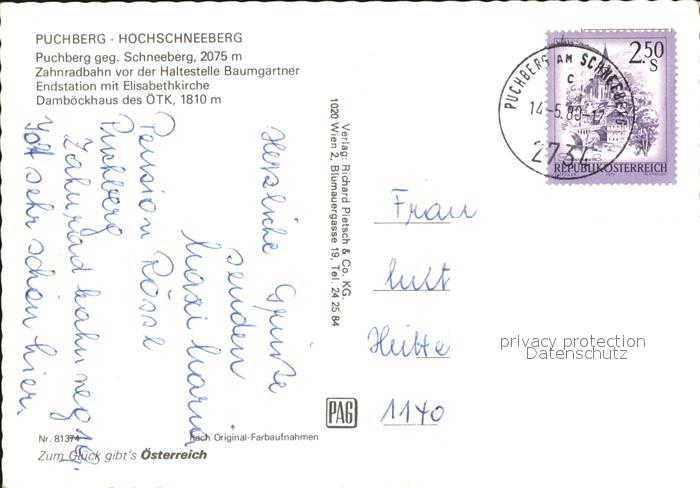 PUCHBERG - HOCHSCHNEEBERG
Puchberg geg. Schneeberg, 2075 m
Zahnradbahn vor der Haltestelle Baumgartner
Endstation mit Elisabethkirche
Damböckhaus des ÖTK, 1810 m
Herzliche Grüße
senden
Maxi Maria
Pension Rössl
Puchberg
Zahnradbahn
sehr schön hier.
Verlag: Richard Pietsch & Co. KG.
1020 Wien 2, Blumauergasse 19, Tel. 24 25 84
PUCHBERG AM SCHNEEBERG
2734
2.50
S
REPUBLIK ÖSTERREICH
Frau
1140
privacy protection
Datenschutz
PAG
Nr. 81374
nach Original-Farbaufnahmen
Zum Glück gibt's Österreich